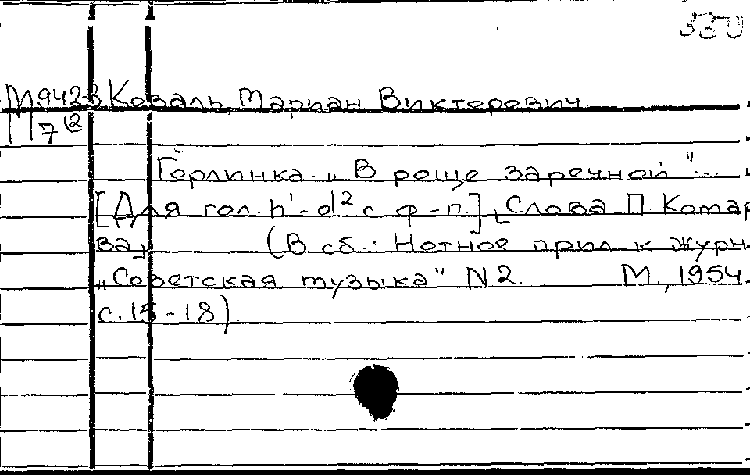 550
М942-3 Коваль, Мариан Викторович
П7②
Горлинка. „В роще заречной"...
[Для гол. h¹-d² с ф-п.] [Слова П. Комаро
ва] (В сб.: Нотное прил. к журн.
„Советская музыка" N2. М., 1954.
с. 15-18)